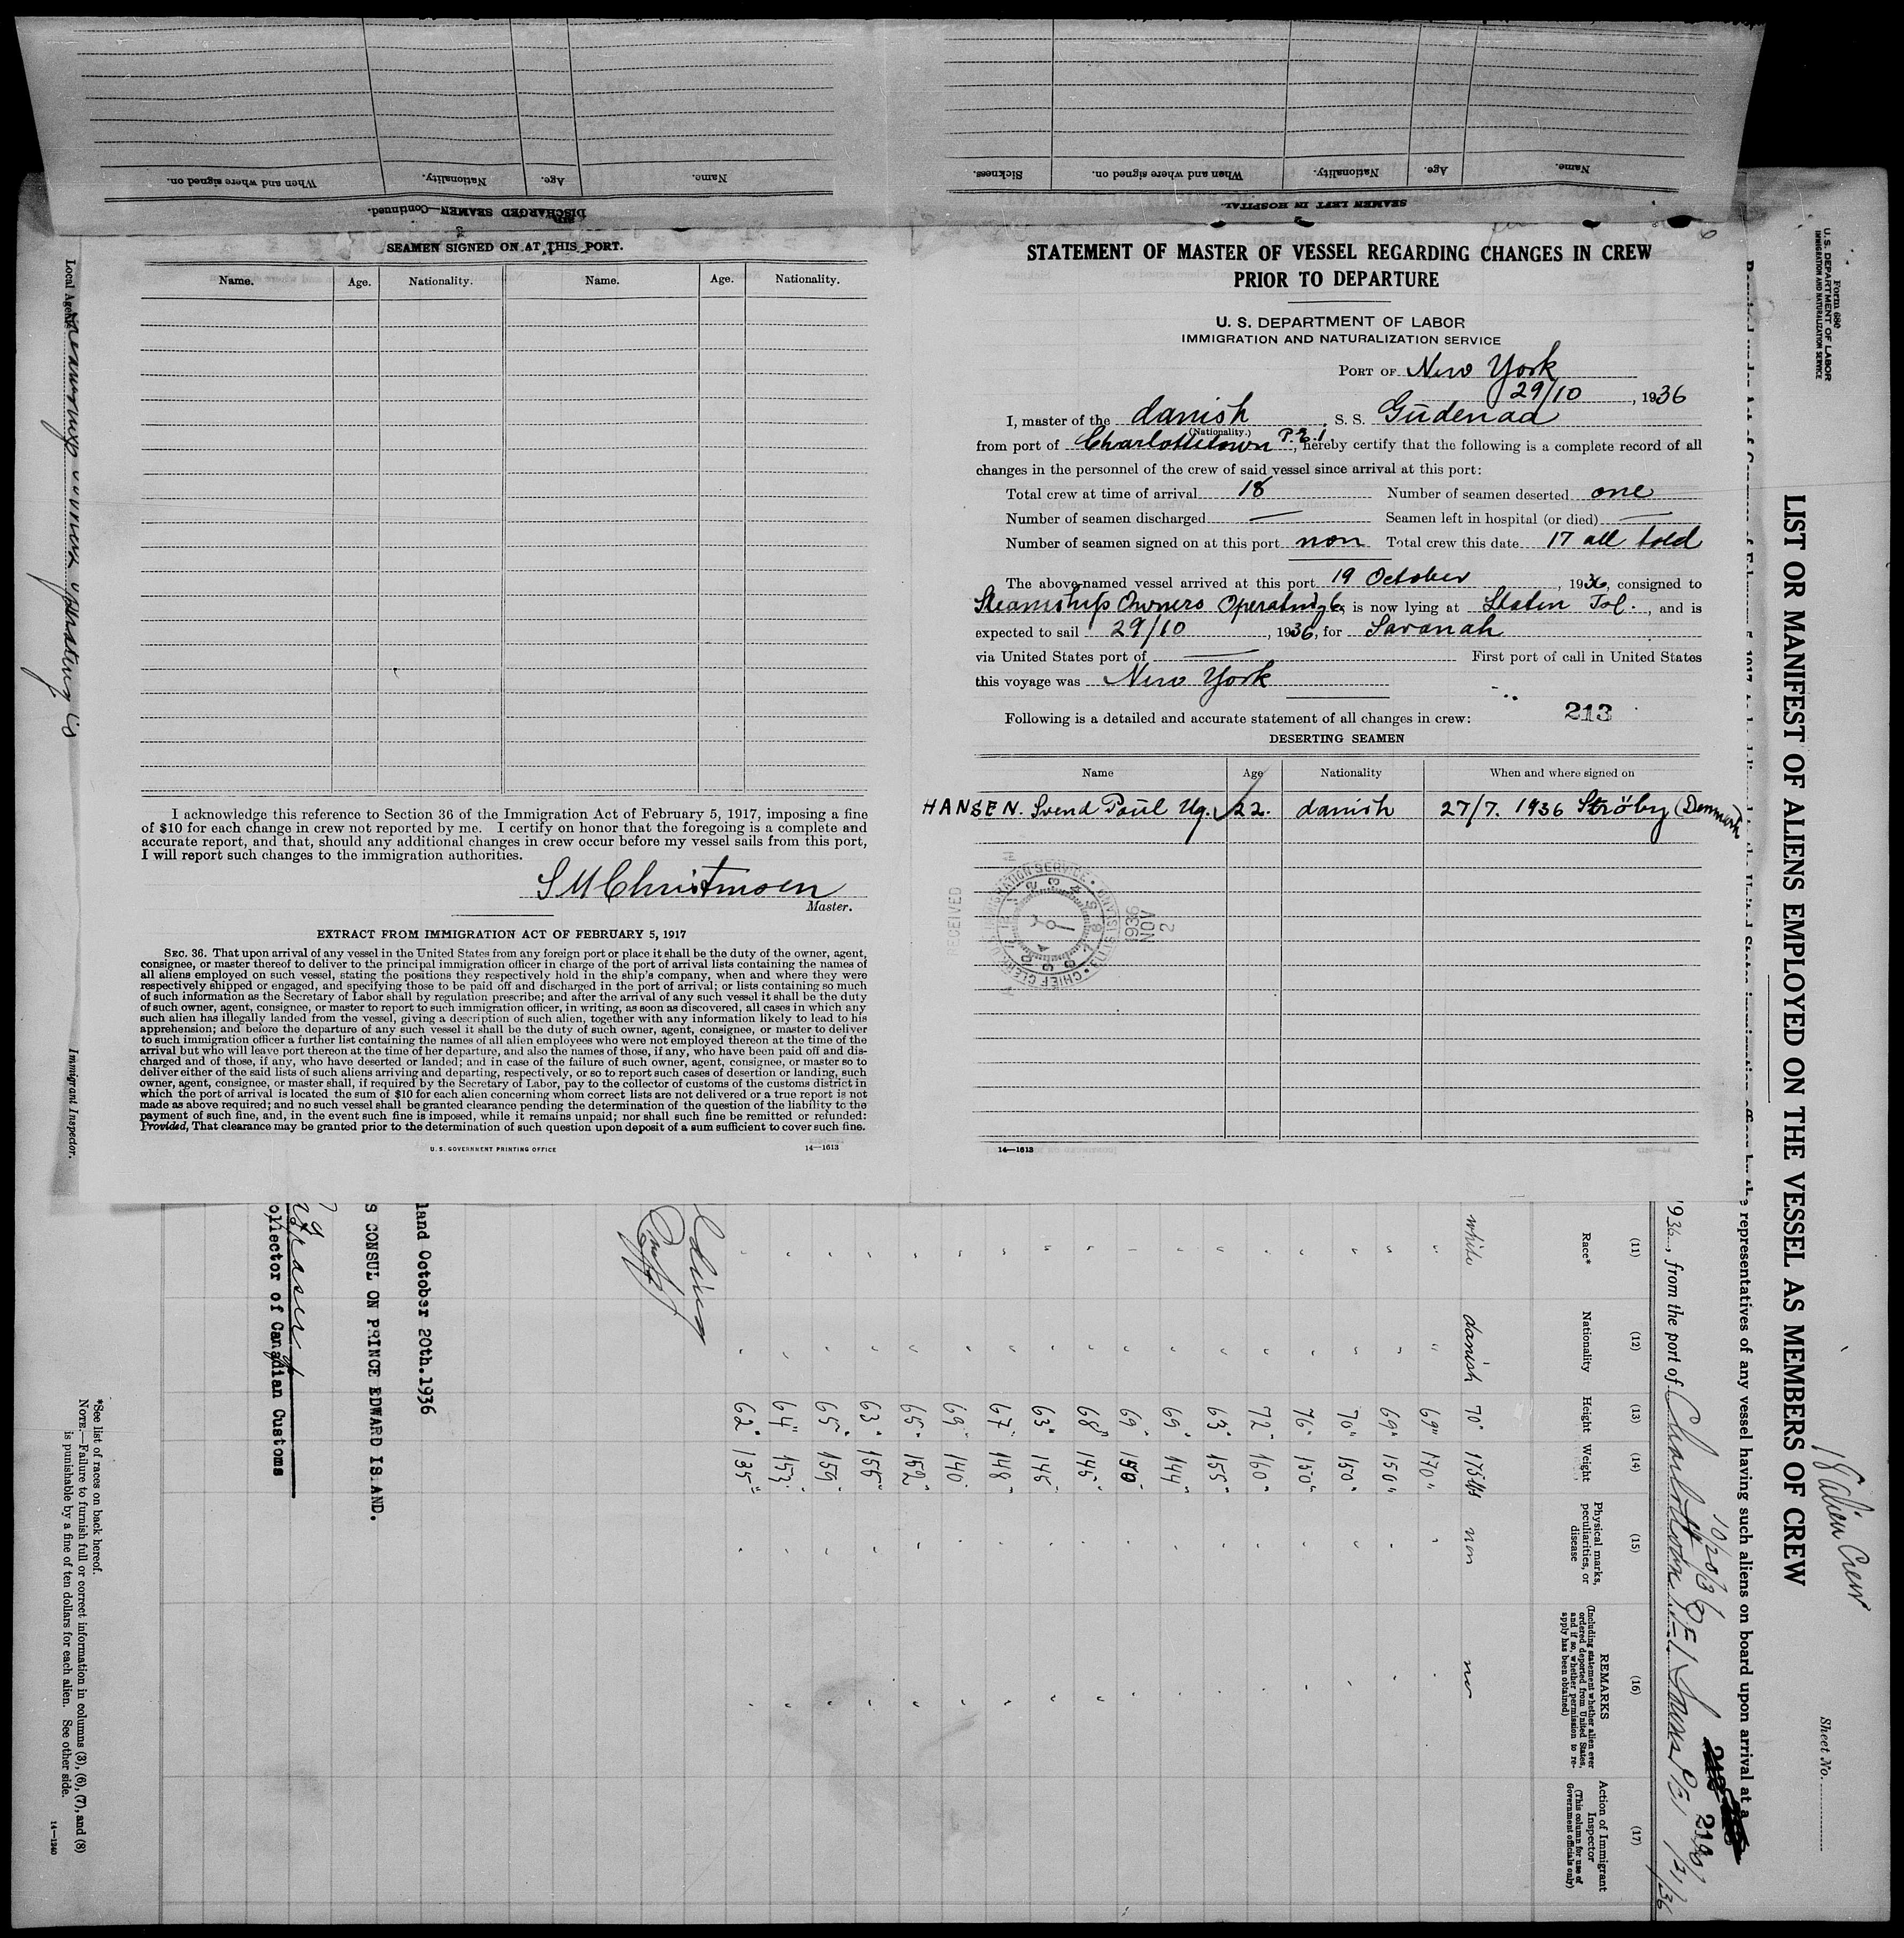 When and where signed on.
Nationality.
Age.
Name.
Sickness.
When and where signed on.
Nationality.
Age.
Name.
DISCHARGED SEAMEN—Continued.
SEAMEN LEFT IN HOSPITAL
SEAMEN SIGNED ON AT THIS PORT.
Name. Age. Nationality. Name. Age. Nationality.
I acknowledge this reference to Section 36 of the Immigration Act of February 5, 1917, imposing a fine
of $10 for each change in crew not reported by me. I certify on honor that the foregoing is a complete and
accurate report, and that, should any additional changes in crew occur before my vessel sails from this port,
I will report such changes to the immigration authorities.
Master.
EXTRACT FROM IMMIGRATION ACT OF FEBRUARY 5, 1917
SEC. 36. That upon arrival of any vessel in the United States from any foreign port or place it shall be the duty of the owner, agent,
consignee, or master thereof to deliver to the principal immigration officer in charge of the port of arrival lists containing the names of
all aliens employed on such vessel, stating the positions they respectively hold in the ship's company, when and where they were
respectively shipped or engaged, and specifying those to be paid off and discharged in the port of arrival; or lists containing so much
of such information as the Secretary of Labor shall by regulation prescribe; and after the arrival of any such vessel it shall be the duty
of such owner, agent, consignee, or master to report to such immigration officer, in writing, as soon as discovered, all cases in which any
such alien has illegally landed from the vessel, giving a description of such alien, together with any information likely to lead to his
apprehension; and before the departure of any such vessel it shall be the duty of such owner, agent, consignee, or master to deliver
to such immigration officer a further list containing the names of all alien employees who were not employed thereon at the time of the
arrival but who will leave port thereon at the time of her departure, and also the names of those, if any, who have been paid off and dis-
charged and of those, if any, who have deserted or landed; and in case of the failure of such owner, agent, consignee, or master so to
deliver either of the said lists of such aliens arriving and departing, respectively, or so to report such cases of desertion or landing, such
owner, agent, consignee, or master shall, if required by the Secretary of Labor, pay to the collector of customs of the customs district in
which the port of arrival is located the sum of $10 for each alien concerning whom correct lists are not delivered or a true report is not
made as above required; and no such vessel shall be granted clearance pending the determination of the question of the liability to the
payment of such fine, and, in the event such fine is imposed, while it remains unpaid; nor shall such fine be remitted or refunded:
Provided, That clearance may be granted prior to the determination of such question upon deposit of a sum sufficient to cover such fine.
U. S. GOVERNMENT PRINTING OFFICE 14—1613
STATEMENT OF MASTER OF VESSEL REGARDING CHANGES IN CREW
PRIOR TO DEPARTURE
U. S. DEPARTMENT OF LABOR
IMMIGRATION AND NATURALIZATION SERVICE
PORT OF New York
29/10, 1936
I, master of the danish S. S. Gudenaa
(Nationality.)
from port of Charlottetown P.E.I, hereby certify that the following is a complete record of all
changes in the personnel of the crew of said vessel since arrival at this port:
Total crew at time of arrival 18 Number of seamen deserted one
Number of seamen discharged — Seamen left in hospital (or died) —
Number of seamen signed on at this port non Total crew this date 17 all told
The above-named vessel arrived at this port 19 October, 1936, consigned to
Steamships Owners Operating Co. is now lying at Staten Isl., and is
expected to sail 29/10, 1936, for Savanah
via United States port of — First port of call in United States
this voyage was New York
Following is a detailed and accurate statement of all changes in crew: 213
DESERTING SEAMEN
Name Age Nationality When and where signed on
HANSEN. Svend Poul Ug. 22. danish 27/7. 1936 Ströby (Denmark
RECEIVED
IMMIGRATION SERVICE
CHIEF CLERK
ELLIS IS.
1936 NOV 2
14—1613
Local Agents
Immigrant Inspector.
Form 680
U. S. DEPARTMENT OF LABOR
IMMIGRATION AND NATURALIZATION SERVICE
LIST OR MANIFEST OF ALIENS EMPLOYED ON THE VESSEL AS MEMBERS OF CREW
18 Alien Crew
Sheet No.
representatives of any vessel having such aliens on board upon arrival at a
10/20/36
1936, from the port of Charlottetown P.E.I.
(11) (12) (13) (14) (15) (16) (17)
Race* Nationality Height Weight Physical marks, peculiarities, or disease
REMARKS
(Including statement whether alien ever
ordered deported from United States,
and if so, whether permission to re-
apply has been obtained)
Action of Immigrant
Inspector
(This column for use of
Government officials only)
white danish 70" 175 lbs non no
" " 69" 170" " "
" " 69" 150" " "
" " 70" 150" " "
" " 76" 150" " "
" " 72" 160" " "
" " 63" 155" " "
" " 69" 144" " "
" " 69" 150" " "
" " 68" 145" " "
" " 63" 145" " "
" " 67" 148" " "
" " 69" 140" " "
" " 65" 152" " "
" " 63" 155" " "
" " 65" 159" " "
" " 64" 153" " "
" " 62" 135" " "
land October 20th.1936
S CONSUL ON PRINCE EDWARD ISLAND.
ollector of Canadian Customs
*See list of races on back hereof.
NOTE.—Failure to furnish full or correct information in columns (3), (6), (7), and (8)
is punishable by a fine of ten dollars for each alien. See other side.
14—1240